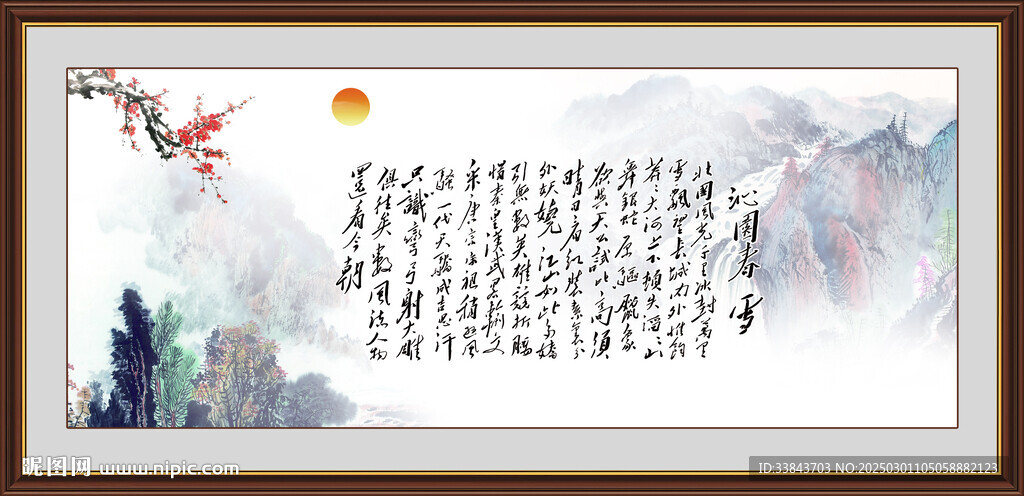 沁園春 雪
北國風光千里冰封萬里
雪飄望長城内外惟餘
莽々大河上下頓失滔々山
舞銀蛇原驅臘象
欲與天公試比高須
晴日看紅裝素裹分
外妖嬈 江山如此多嬌
引無數英雄競折腰
惜秦皇漢武略輸文
采唐宗宋祖稍遜風
騷一代天驕成吉思汗
只識彎弓射大雕
俱往矣數風流人物
還看今朝
昵图网 www.nipic.com
ID:33843703 NO:20250301105058882123